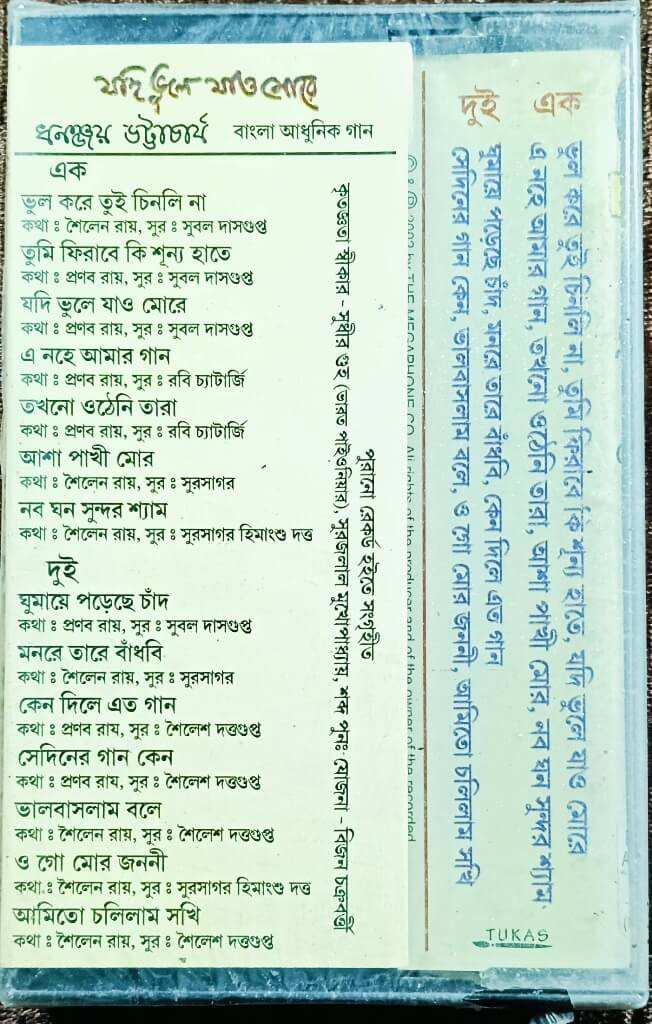 যদি ভুলে যাও মোরে
ধনঞ্জয় ভট্টাচার্য বাংলা আধুনিক গান
এক
ভুল করে তুই চিনলি না
কথা ঃ শৈলেন রায়, সুর ঃ সুবল দাসগুপ্ত
তুমি ফিরাবে কি শূন্য হাতে
কথা ঃ প্রণব রায়, সুর ঃ সুবল দাসগুপ্ত
যদি ভুলে যাও মোরে
কথা ঃ প্রণব রায়, সুর ঃ সুবল দাসগুপ্ত
এ নহে আমার গান
কথা ঃ প্রণব রায়, সুর ঃ রবি চ্যাটার্জি
তখনো ওঠেনি তারা
কথা ঃ প্রণব রায়, সুর ঃ রবি চ্যাটার্জি
আশা পাখী মোর
কথা ঃ শৈলেন রায়, সুর ঃ সুরসাগর
নব ঘন সুন্দর শ্যাম
কথা ঃ শৈলেন রায়, সুর ঃ সুরসাগর হিমাংশু দত্ত
দুই
ঘুমায়ে পড়েছে চাঁদ
কথা ঃ প্রণব রায়, সুর ঃ সুবল দাসগুপ্ত
মনরে তারে বাঁধবি
কথা ঃ শৈলেন রায়, সুর ঃ সুরসাগর
কেন দিলে এত গান
কথা ঃ প্রণব রায়, সুর ঃ শৈলেশ দত্তগুপ্ত
সেদিনের গান কেন
কথা ঃ প্রণব রায়, সুর ঃ শৈলেশ দত্তগুপ্ত
ভালবাসলাম বলে
কথা ঃ শৈলেন রায়, সুর ঃ শৈলেশ দত্তগুপ্ত
ও গো মোর জননী
কথা ঃ শৈলেন রায়, সুর ঃ সুরসাগর হিমাংশু দত্ত
আমিতো চলিলাম সখি
কথা ঃ শৈলেন রায়, সুর ঃ শৈলেশ দত্তগুপ্ত
পুরানো রেকর্ড হইতে সংগৃহীত
কৃতজ্ঞতা স্বীকার - সুধীর গুহ (ভারত পাইওনিয়ার), সুরজলাল মুখোপাধ্যায়, শব্দ পুনঃ যোজনা - বিজন চক্রবর্তী
2002 by THE MEGAPHONE CO. All rights of the producer and of the owner of the recorded
এক
ভুল করে তুই চিনলি না, তুমি ফিরাবে কি শূন্য হাতে, যদি ভুলে যাও মোরে
এ নহে আমার গান, তখনো ওঠেনি তারা, আশা পাখী মোর, নব ঘন সুন্দর শ্যাম
দুই
ঘুমায়ে পড়েছে চাঁদ, মনরে তারে বাঁধবি, কেন দিলে এত গান
সেদিনের গান কেন, ভালবাসলাম বলে, ও গো মোর জননী, আমিতো চলিলাম সখি
TUKAS